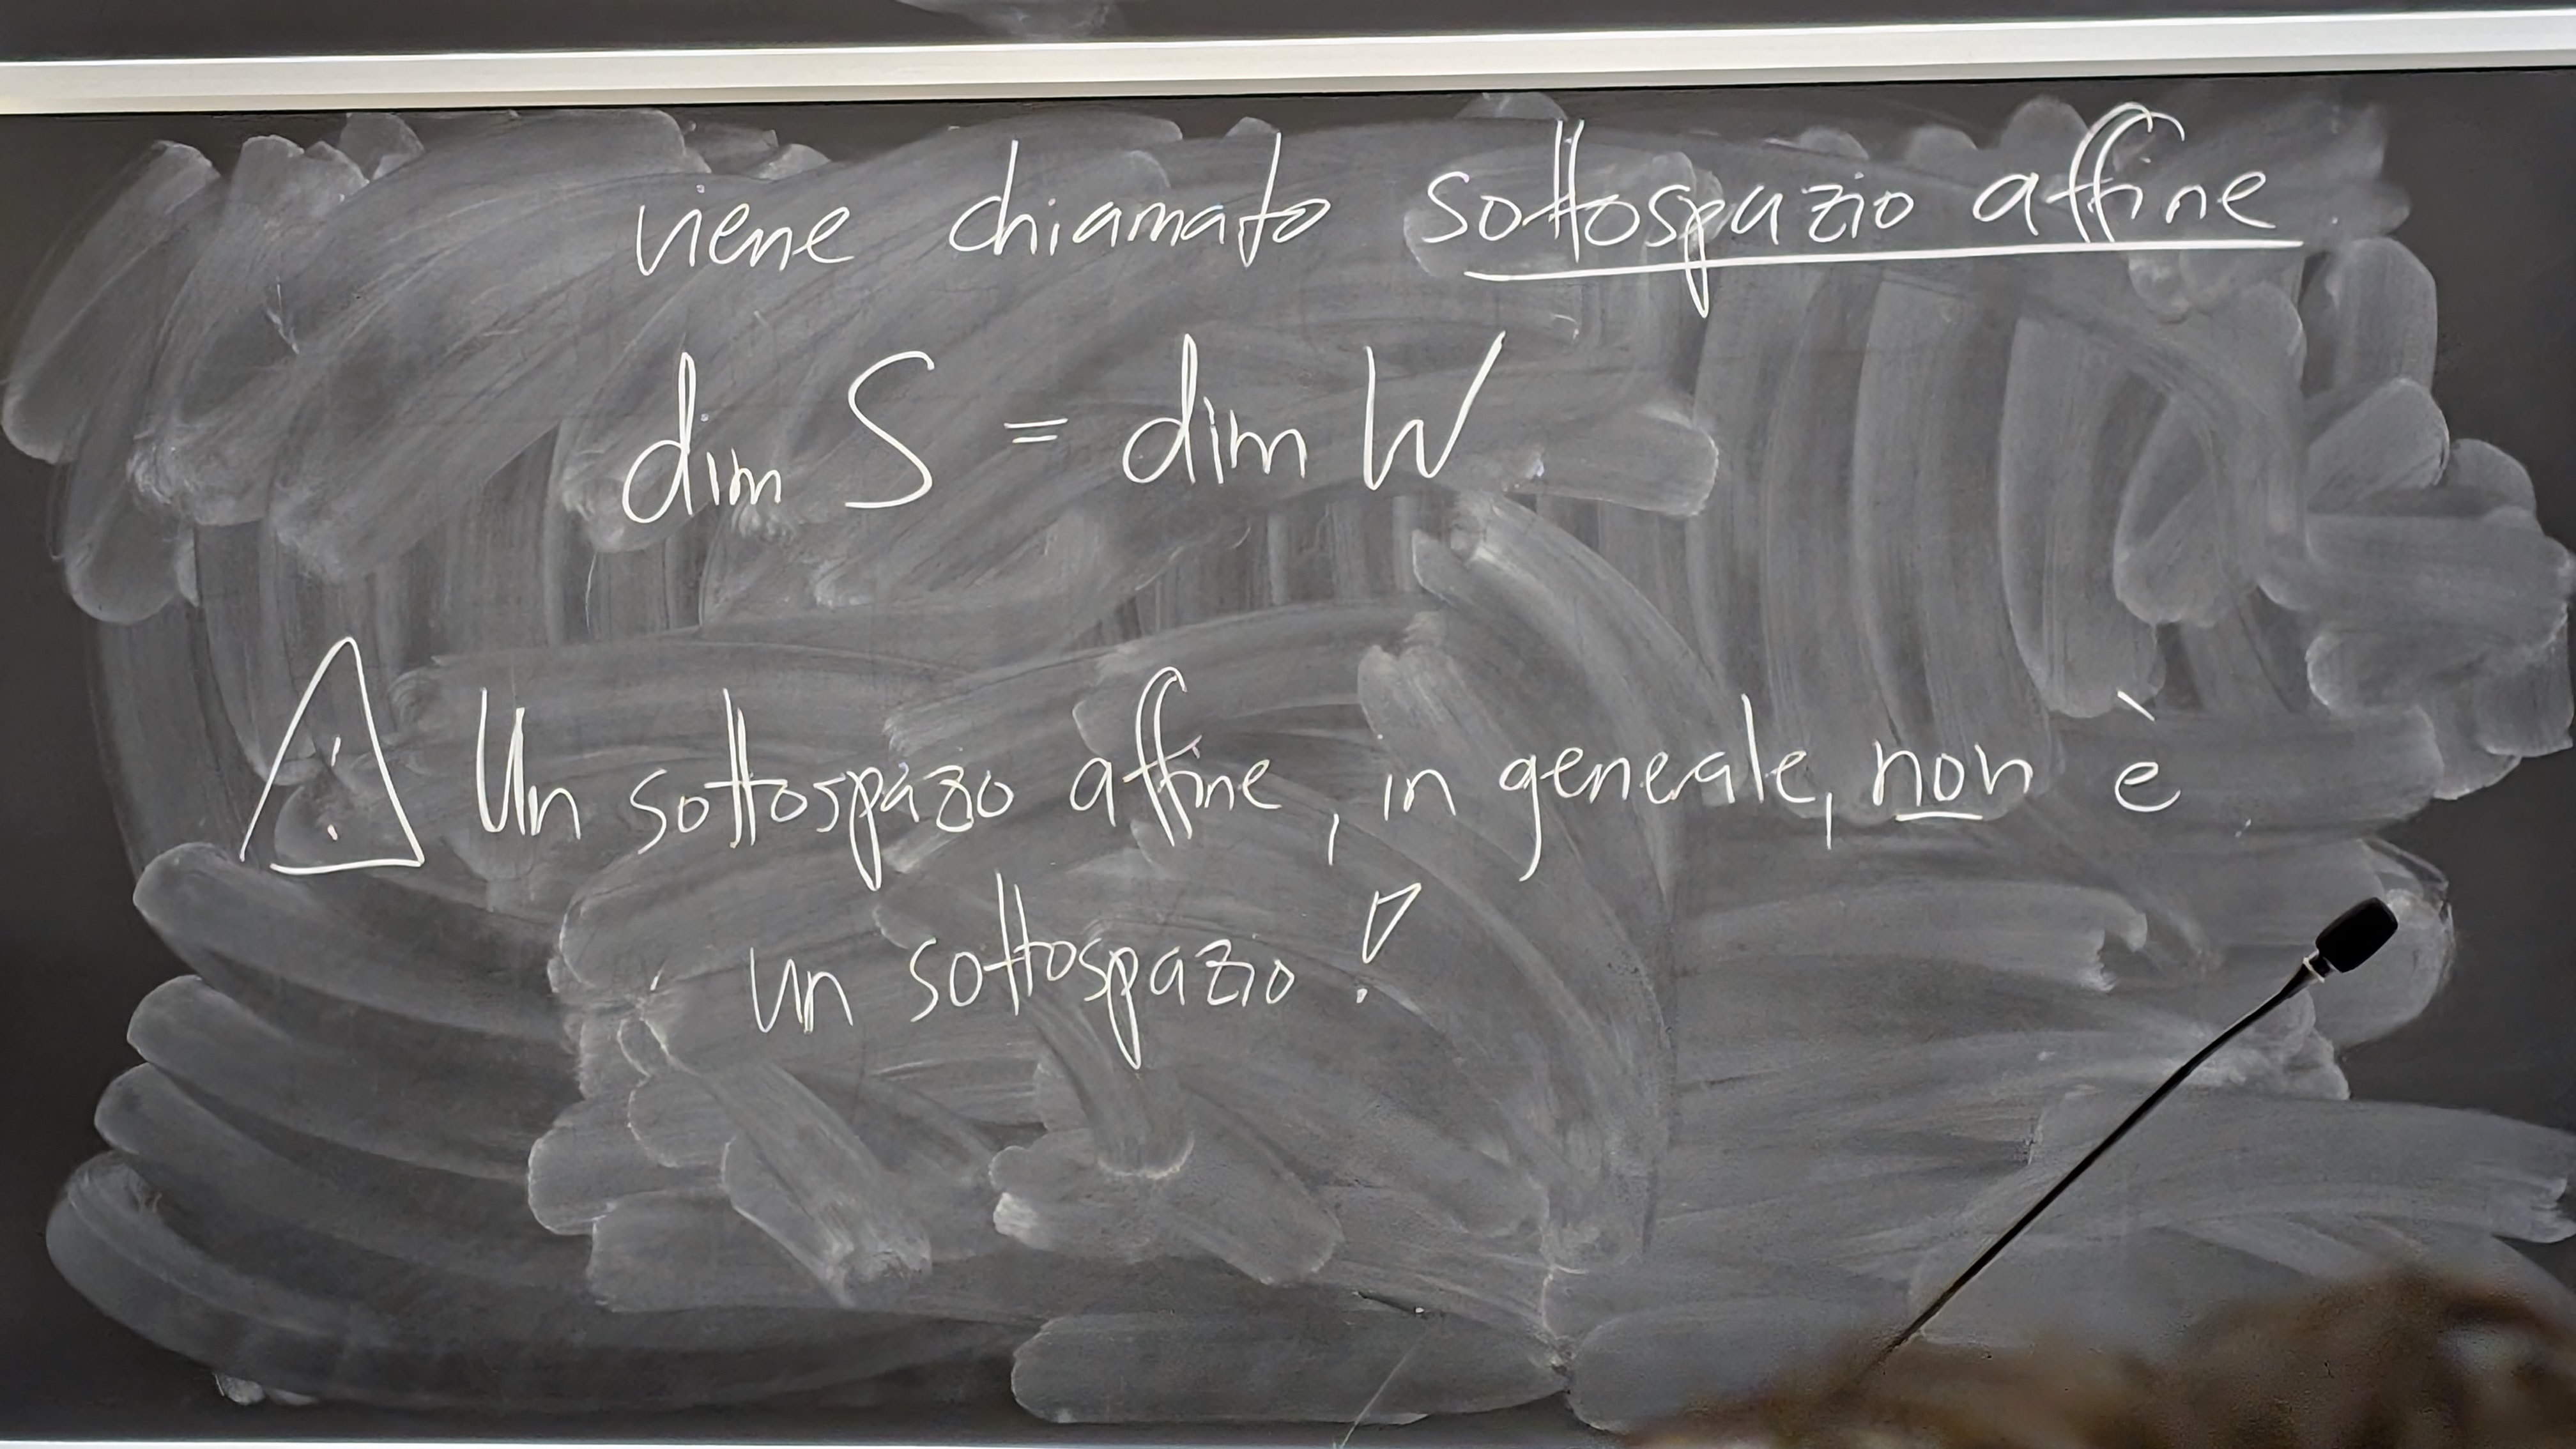 viene chiamato sottospazio affine
dim S = dim W
⚠ Un sottospazio affine, in generale, non è
un sottospazio!